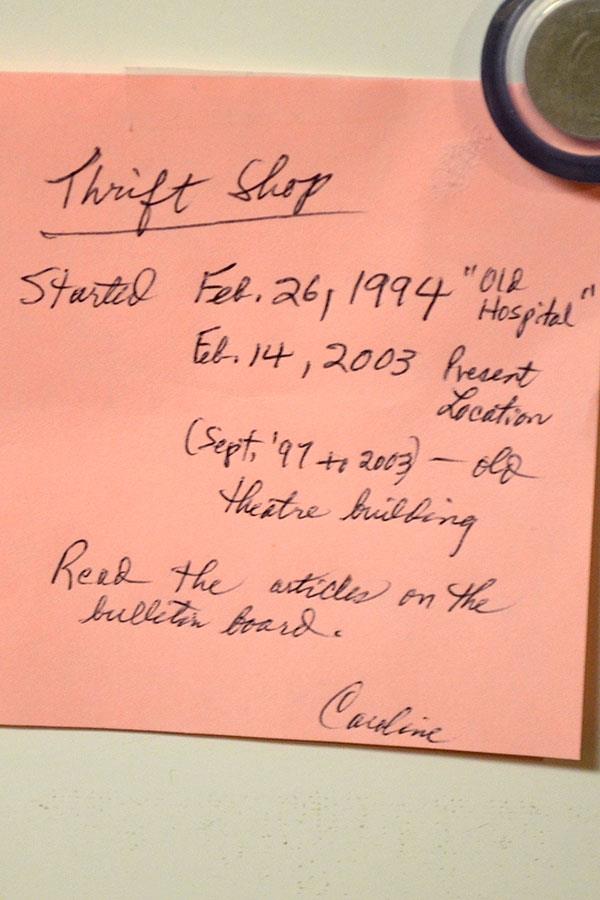 Thrift Shop
Started Feb. 26, 1994 "Old
Hospital"
Feb. 14, 2003 Present
Location
(Sept. '97 to 2003) — old
theatre building
Read the articles on the
bulletin board.
Caroline